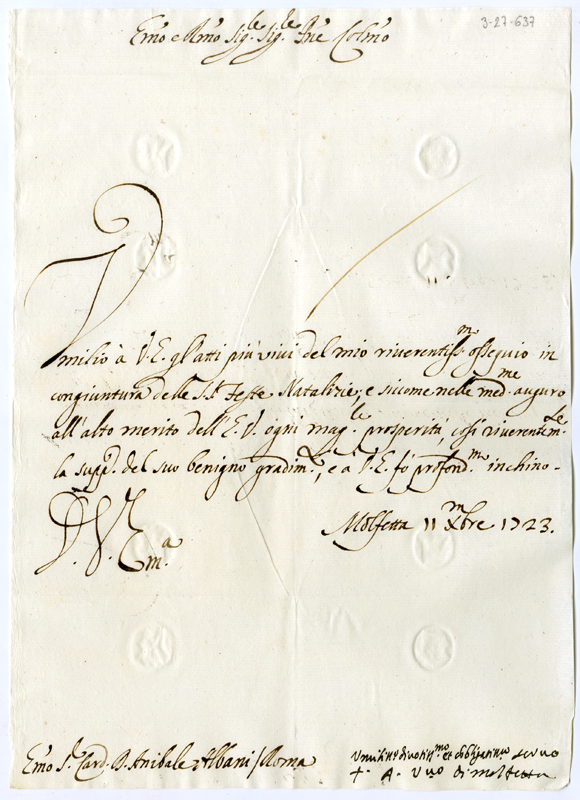 3-27-637
Emo e Rmo Sig.re Sig.re Pne Colmo
Umilio à V. E. gl'atti più vivi del mio riverentiss.mo ossequio in
congiuntura delle S.te Feste Natalizie; e siccome nelle med.me auguro
all'alto merito dell'E. V. ogni mag.le prosperità, così riverentem.te
la supp.o del suo benigno gradim.to, e a V. E. fò profond.mo inchino.
Molfetta 11 Xmbre 1723.
D. V. Em.a
Emo S.r Card. D. Anibale Albani / Roma
Umiliss.o divotiss.mo et obligatiss.o servo
+ A. Vvo di Molfetta